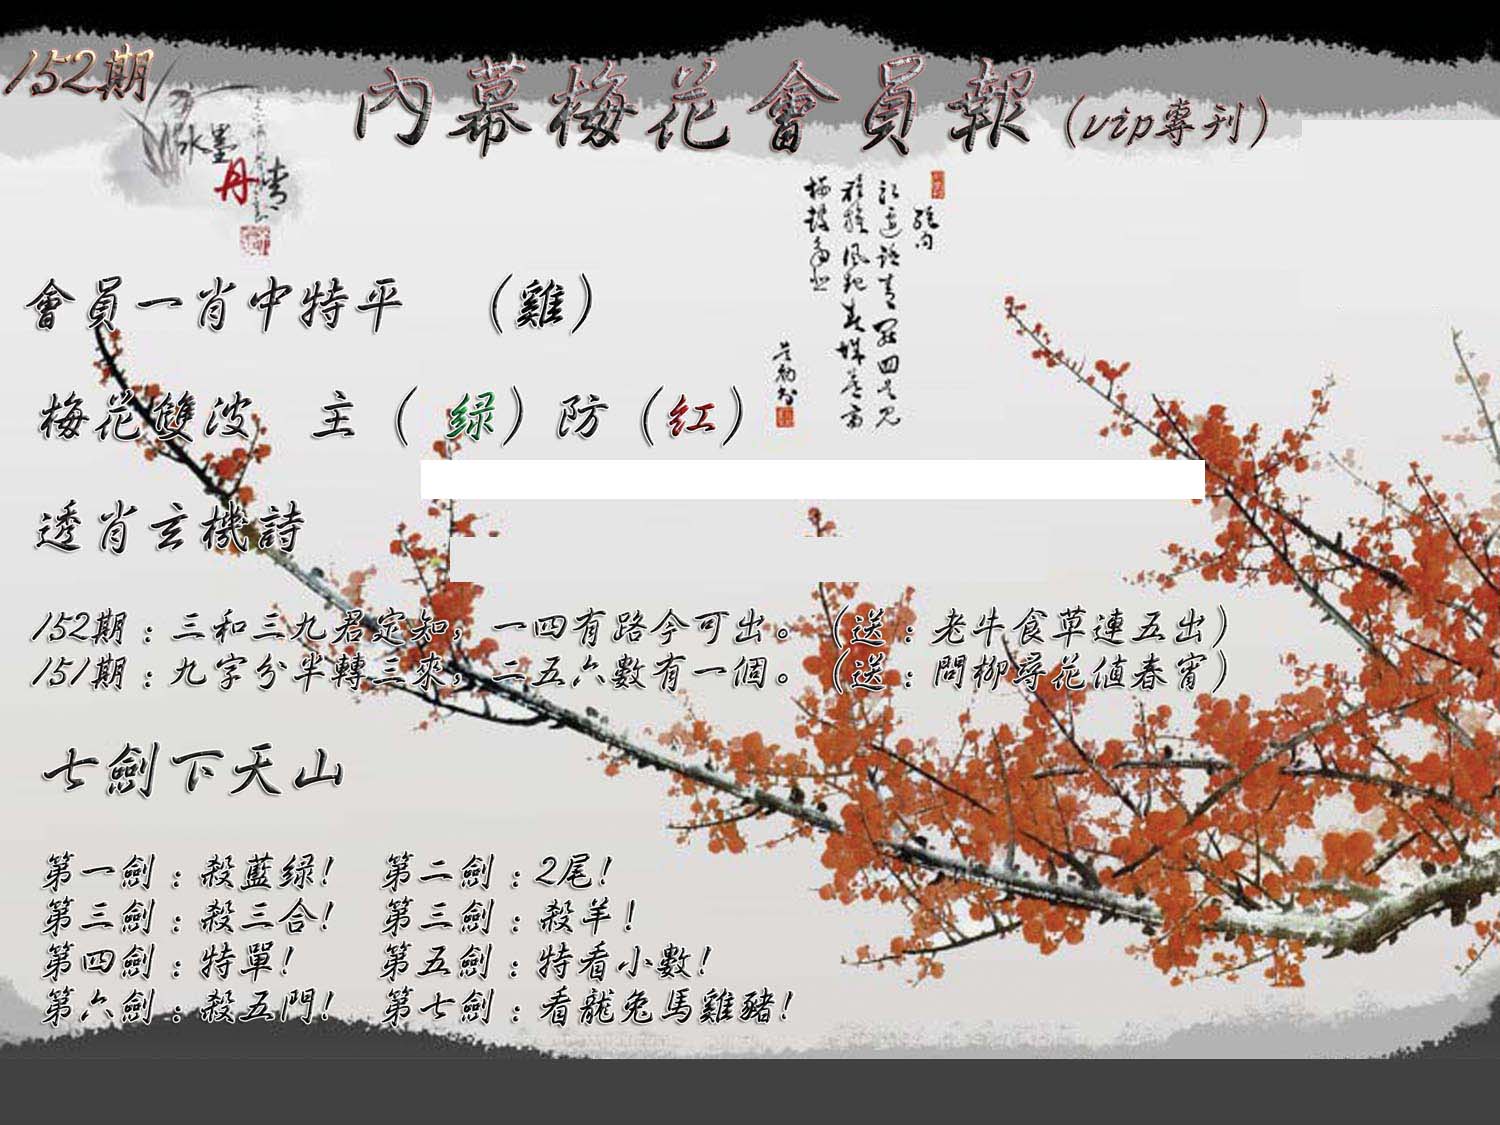 152期
內幕梅花會員報(vip專刊)
水墨
丹青
會員一肖中特平 (雞)
梅花雙波 主(绿)防(红)
透肖玄機詩
152期:三和三九君定知,一四有路今可出。(送:老牛食草連五出)
151期:九字分半轉三來,二五六數有一個。(送:問柳尋花值春宵)
七劍下天山
第一劍:殺藍绿! 第二劍:2尾!
第三劍:殺三合! 第三劍:殺羊!
第四劍:特單! 第五劍:特看小數!
第六劍:殺五門! 第七劍:看龍兔馬雞豬!